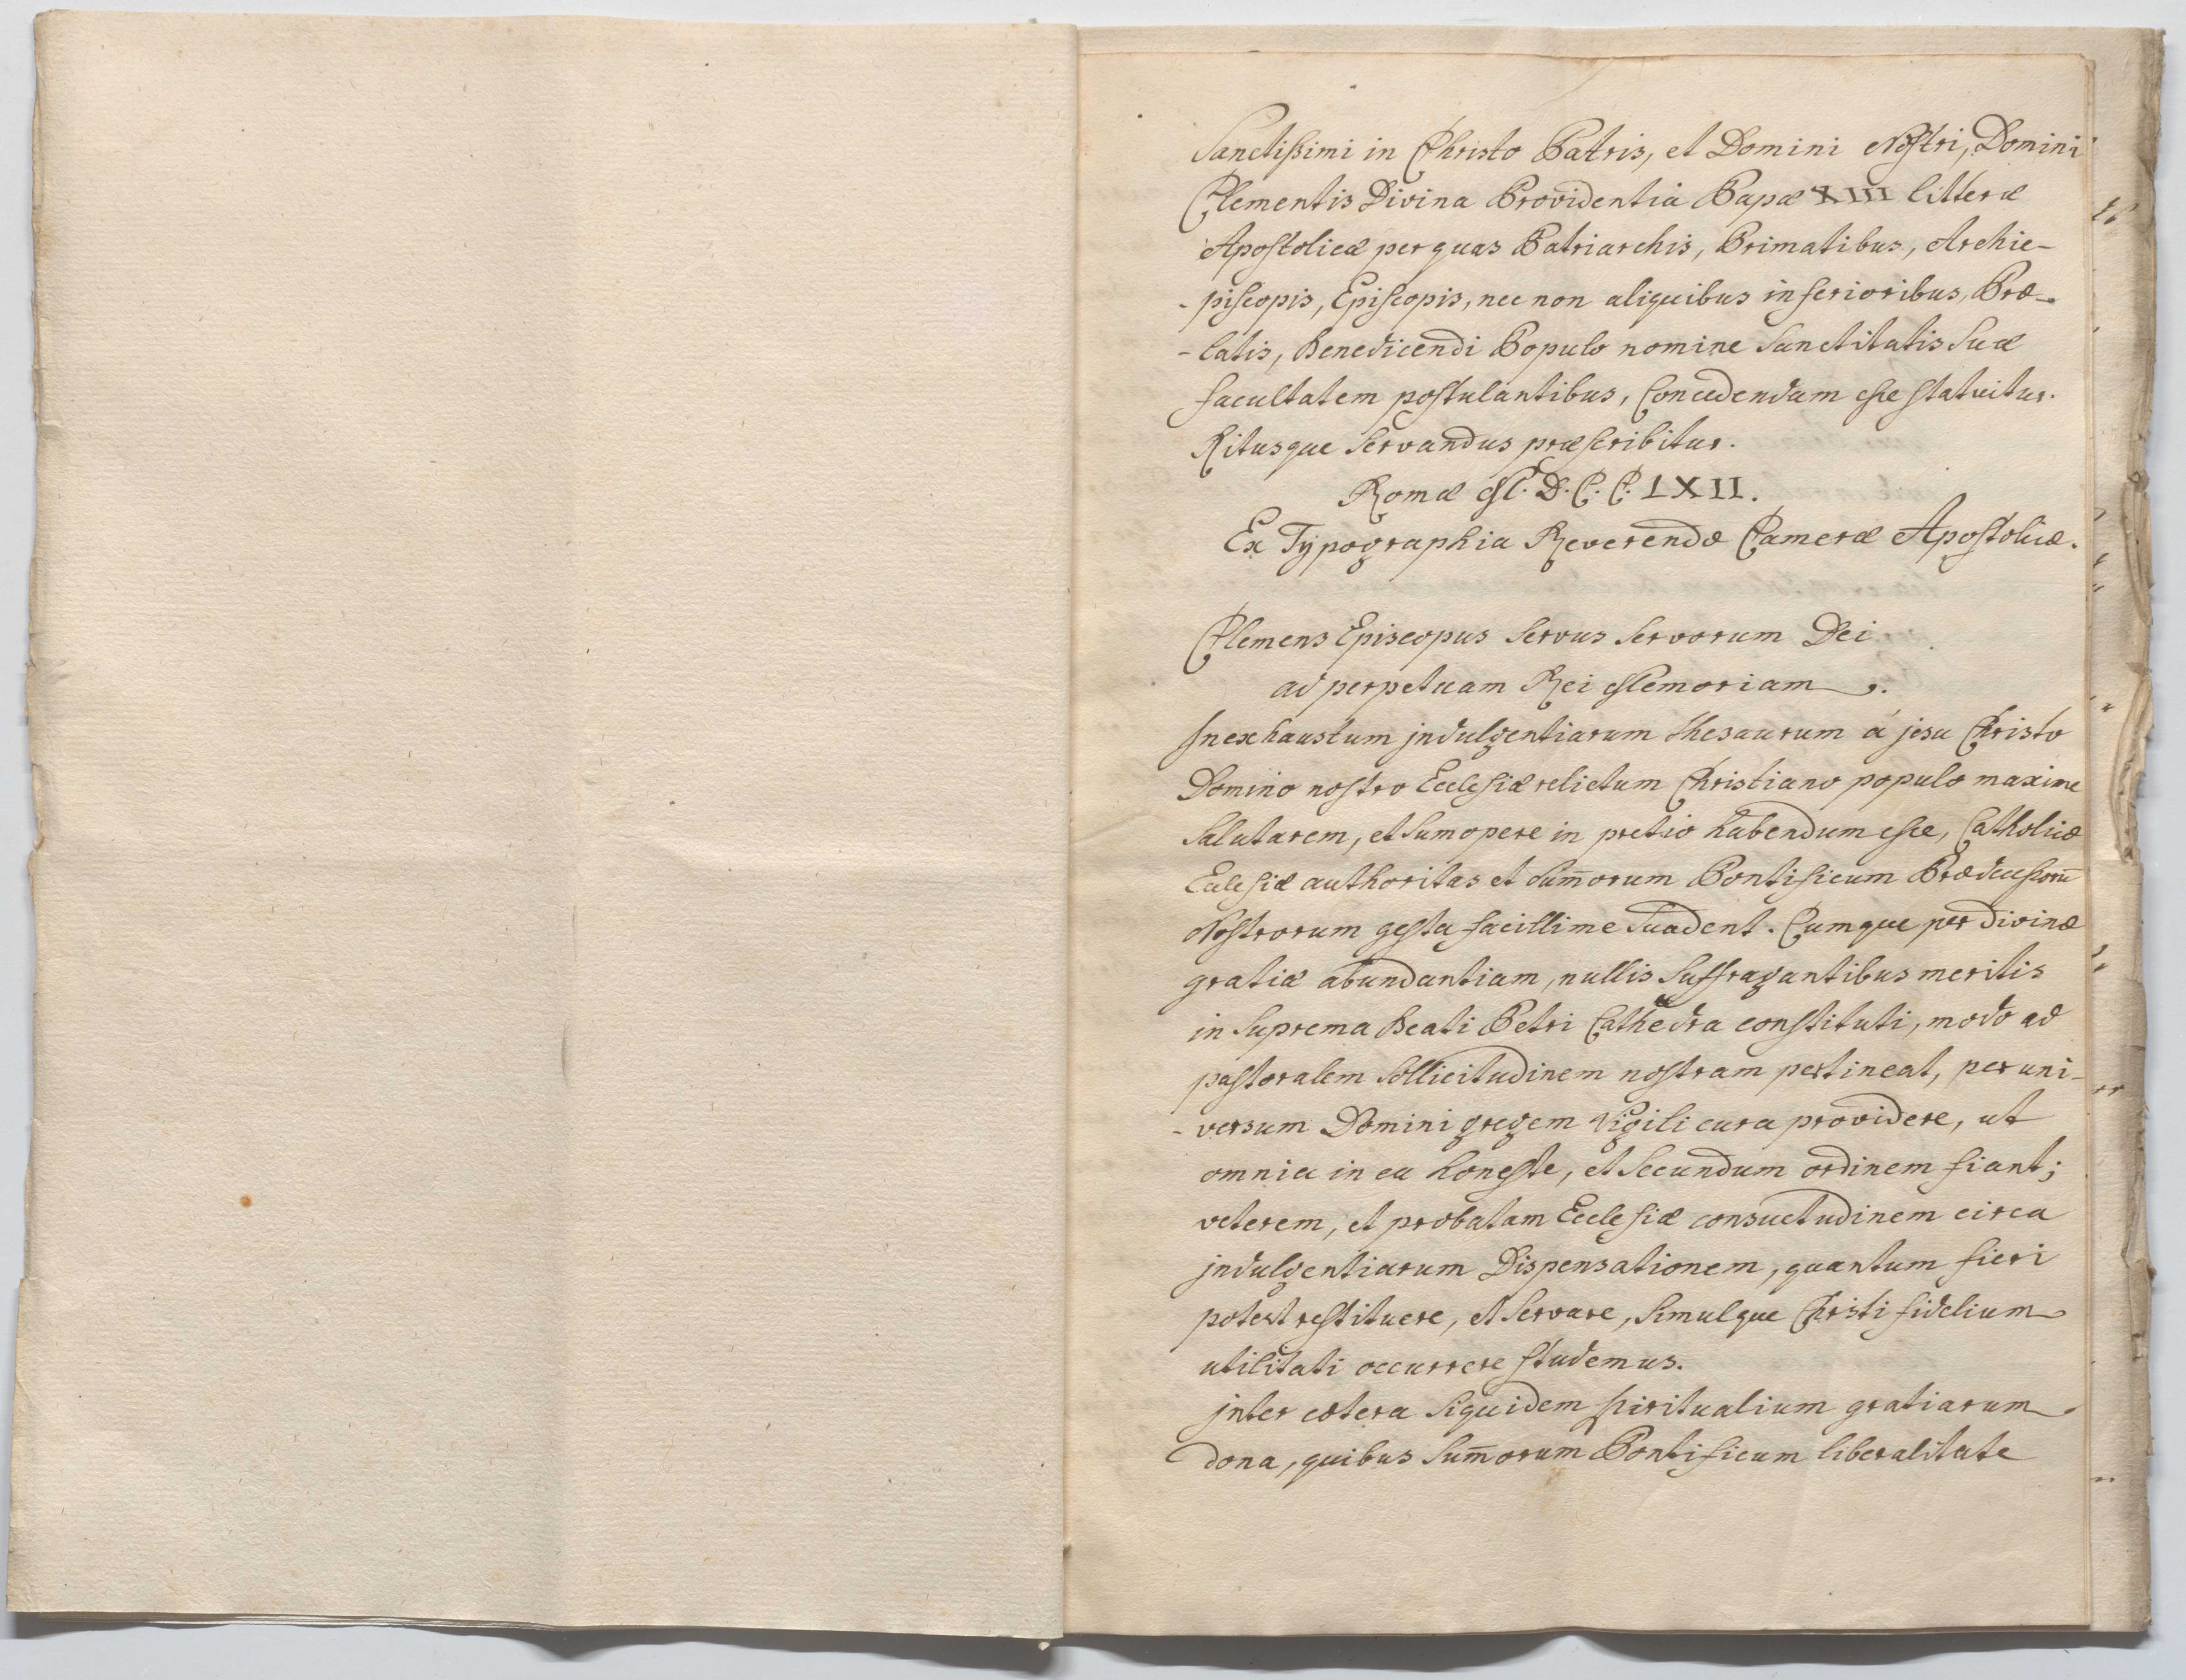 Sanctissimi in Christo Patris, et Domini Nostri, Domini
Clementis Divina Providentia Papæ XIII litteræ
Apostolicæ per quas Patriarchis, Primatibus, Archie-
-piscopis, Episcopis, nec non aliquibus inferioribus, Præ-
-latis, Benedicendi Populo nomine Sanctitatis Suæ
facultatem postulantibus, Concedendam esse statuitur.
Ritusque Servandus præscribitur.
Romæ M. D. C. C. LXII.
Ex Typographia Reverendæ Cameræ Apostolicæ.
Clemens Episcopus Servus Servorum Dei
ad perpetuam Rei Memoriam.
Inexhaustum jndulgentiarum thesaurum á jesu Christo
Domino nostro Ecclesiæ relictum Christiano populo maxime
Salutarem, et Sumopere in pretio habendum esse, Catholicæ
Ecclesiæ authoritas et Sum̄orum Pontificum Prædecessorū
Nostrorum gesta facillime Suadent. Cumque per divinæ
gratiæ abundantiam, nullis Suffragantibus meritis
in Suprema Beati Petri Cathedra constituti, modo ad
pastoralem Sollicitudinem nostram pertineat, per uni-
-versum Domini gregem Vigili cura providere, ut
omnia in ea honeste, et Secundum ordinem fiant;
veterem, et probatam Ecclesiæ consuetudinem circa
jndulgentiarum Dispensationem, quantum fieri
potest restituere, et Servare, Simulque Christi fidelium
utilitati occurrere studemus.
jnter cætera Siquidem spiritualium gratiarum
dona, quibus Sum̄orum Pontificum liberalitate